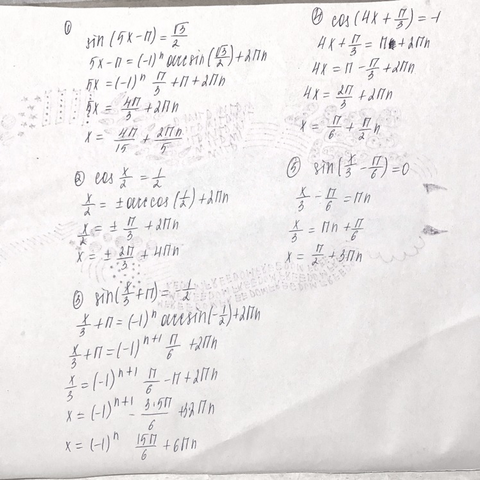 ①
sin(5x-π)=√3/2
5x-π=(-1)ⁿ arcsin(√3/2)+2πn
5x=(-1)ⁿ π/3+π+2πn
5x=4π/3+2πn
x=4π/15+2πn/5
② cos x/2=1/2
x/2=±arccos(1/2)+2πn
x/2=±π/3+2πn
x=±2π/3+4πn
③ sin(x/3+π)=-1/2
x/3+π=(-1)ⁿ arcsin(-1/2)+2πn
x/3+π=(-1)ⁿ⁺¹ π/6+2πn
x/3=(-1)ⁿ⁺¹ π/6-π+2πn
x=(-1)ⁿ⁺¹-3·5π/6+32πn
x=(-1)ⁿ 15π/6+6πn
cos(4x+π/3)=-1
4x+π/3=π+2πn
4x=π-π/3+2πn
4x=2π/3+2πn
x=π/6+π/2n
⑤ sin(x/3-π/6)=0
x/3-π/6=πn
x/3=πn+π/6
x=π/2+3πn